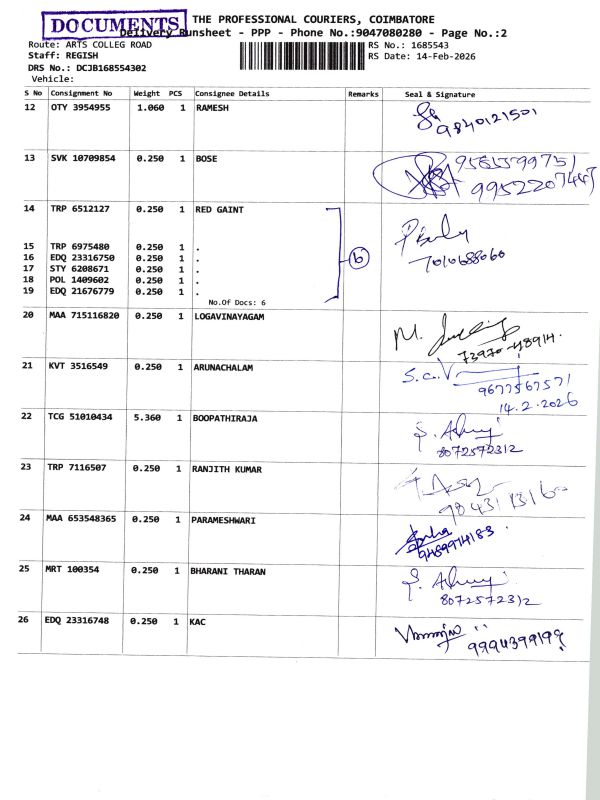 DOCUMENTS
THE PROFESSIONAL COURIERS, COIMBATORE
Delivery Runsheet - PPP - Phone No.:9047080280 - Page No.:2
Route: ARTS COLLEG ROAD
RS No.: 1685543
Staff: REGISH
RS Date: 14-Feb-2026
DRS No.: DCJB168554302
Vehicle:
S No Consignment No Weight PCS Consignee Details Remarks Seal & Signature
12 OTY 3954955 1.060 1 RAMESH
9840121501
13 SVK 10709854 0.250 1 BOSE
9952207447
14 TRP 6512127 0.250 1 RED GAINT
15 TRP 6975480 0.250 1 .
16 EDQ 23316750 0.250 1 .
17 STY 6208671 0.250 1 .
18 POL 1409602 0.250 1 .
19 EDQ 21676779 0.250 1 .
6
7010688060
No.Of Docs: 6
20 MAA 715116820 0.250 1 LOGAVINAYAGAM
M.
73970-48914.
21 KVT 3516549 0.250 1 ARUNACHALAM
S.C.V
9677567571
14.2.2026
22 TCG 51010434 5.360 1 BOOPATHIRAJA
8072572312
23 TRP 7116507 0.250 1 RANJITH KUMAR
24 MAA 653548365 0.250 1 PARAMESHWARI
9489974183.
25 MRT 100354 0.250 1 BHARANI THARAN
8072572312
26 EDQ 23316748 0.250 1 KAC
9994399199